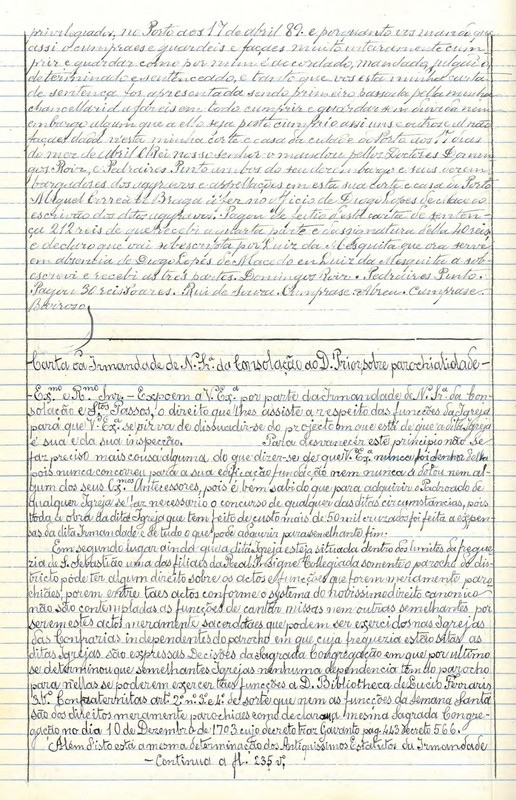 privilegiador, no Porto aos 17 de Abril 89. e porquanto vos mando que
assi o cumpraes e guardeis e façaes muito inteiramente cum
prir e guardar como por mim é acordado, mandado, julgado
determinado e sentenceado, e tanto que vos esta minha carta
de sentença for apresentada sendo primeiro passada pella minha
chancellaria a façaes em todo cumprir e guardar sem duvida nem
embargo algum que a ello seja posto cumprio assi uns e outros e al não
façaes dada nesta minha corte e casa da cidade do Porto aos 17 dias
do mez de Abril El Rei nosso senhor o mandou pellos Doctores Domin
gos Roiz, e Pedraires Pinto ambos do seu dezembargo e seus dezem
bargadores dos aggravos e appellações em esta sua corte e casa do Porto
Miguel Correia Braga a fez no officio de Diogo Lopes de Macedo
escrivão dos ditos aggravos. Pagou de feitio d'esta carta de senten
ça 212 reis de que recebi a quarta parte e da assignatura della 40 reis
e declaro que vai sobescripta por Luiz da Mesquita que ora serve
em absencia de Diogo Lopes de Macedo eu Luiz da Mesquita a sob
escrevi e recebi as tres partes. Domingos Roiz. Pedraires Pinto.
Pagou 31 reis Soares. Rui de Souza. Cumprase. Abreu. Cumprase.
Barroso
Carta da Irmandade de N.ª Sr.ª da Consolação ao D. Prior sobre parochialidade
Ex.mo e R.mo Snr. - Expoem a V. Ex.ª por parte da Irmandade de N.ª Sr.ª da Con
solação e S.tos Passos, o direito que lhes assiste a respeito das funcções da Igreja
para que V.ª Ex.ª se sirva de dissuadir-se do projecto em que está de que a dita Igreja
é sua e da sua inspecção. Para desvanecer este principio não se
faz preciso mais cousa alguma do que dizer-se de que V.ª Ex.ª nunca foi senhor della
pois nunca concorreu para a sua edificação fundação nem nunca a dotou nem al
gum dos seus Ex.mos Antecessores, pois é bem sabido que para adquirir o Padroado de
qualquer Igreja se faz necessario o concurso de qualquer das ditas circumstancias, pois
toda a obra da dita Igreja que tem feito de custo mais de 50 mil cruzados foi feita a expen
sas da dita Irmandade e de tudo o que pôde adquirir para semelhante fim.
Em segundo lugar ainda que a dita Igreja esteja situada dentro dos limites da fregue
zia de S. Sebastião uma das filiaes da Real e Insigne Collegiada somente o parocho do dis
tricto póde ter algum direito sobre os actos e funcções que forem meramente paro
chiães; porem entre taes actos conforme o systema do novissimo direito canonico
não são contempladas as funcções de cantar missas nem outras semelhantes por
serem estes actos meramente sacerdotaes que podem ser exercidos nas Igrejas
das Confrarias independentes do parocho em que cuja freguezia estão sitas as
ditas Igrejas são expressas Decisões da Sagrada Congregação em que por ultimo
se determinou que semelhantes Igrejas nenhuma dependencia tem do parocho
para nellas se poderem exercer taes funcções a D. Bibliotheca de Lucio Ferraris
V.º Confraternitas art.º 2.º n.º 3 e 4.º de sorte que nem as funcções da Semana Santa
são dos direitos meramente parochiaes como declarou a mesma Sagrada Congre-
gação no dia 10 de Dezembro de 1703 cujo decreto traz Gavanto pag. 443 Decreto 566.
Além d'isto está a mesma determinação dos Antiquissimos Estatutos da Irmandade
- Continua a fl. 235 v.